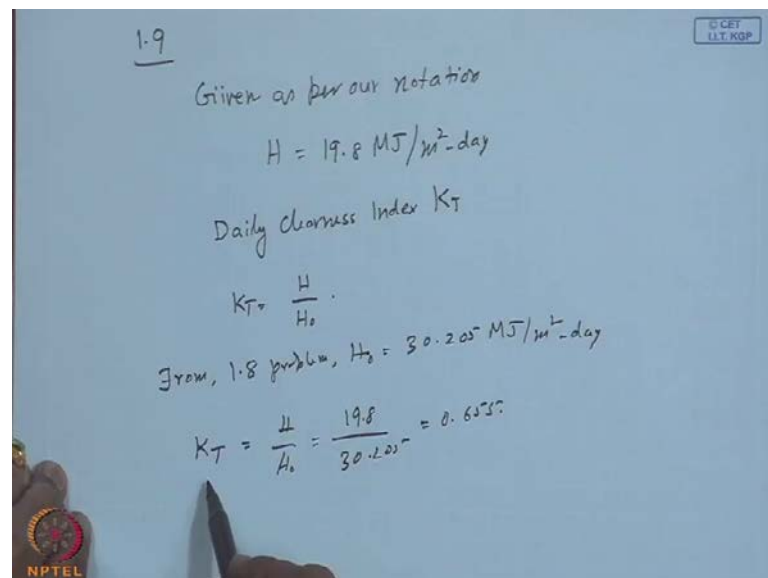 1.9
© CET
I.I.T. KGP
Giiven as per our notation
H = 19.8 MJ/m²-day
Daily Clearness Index K_T
K_T = H / H₀ .
From, 1.8 problem, H₀ = 30.205 MJ/m²-day
K_T = H / H₀ = 19.8 / 30.205 = 0.655.
NPTEL